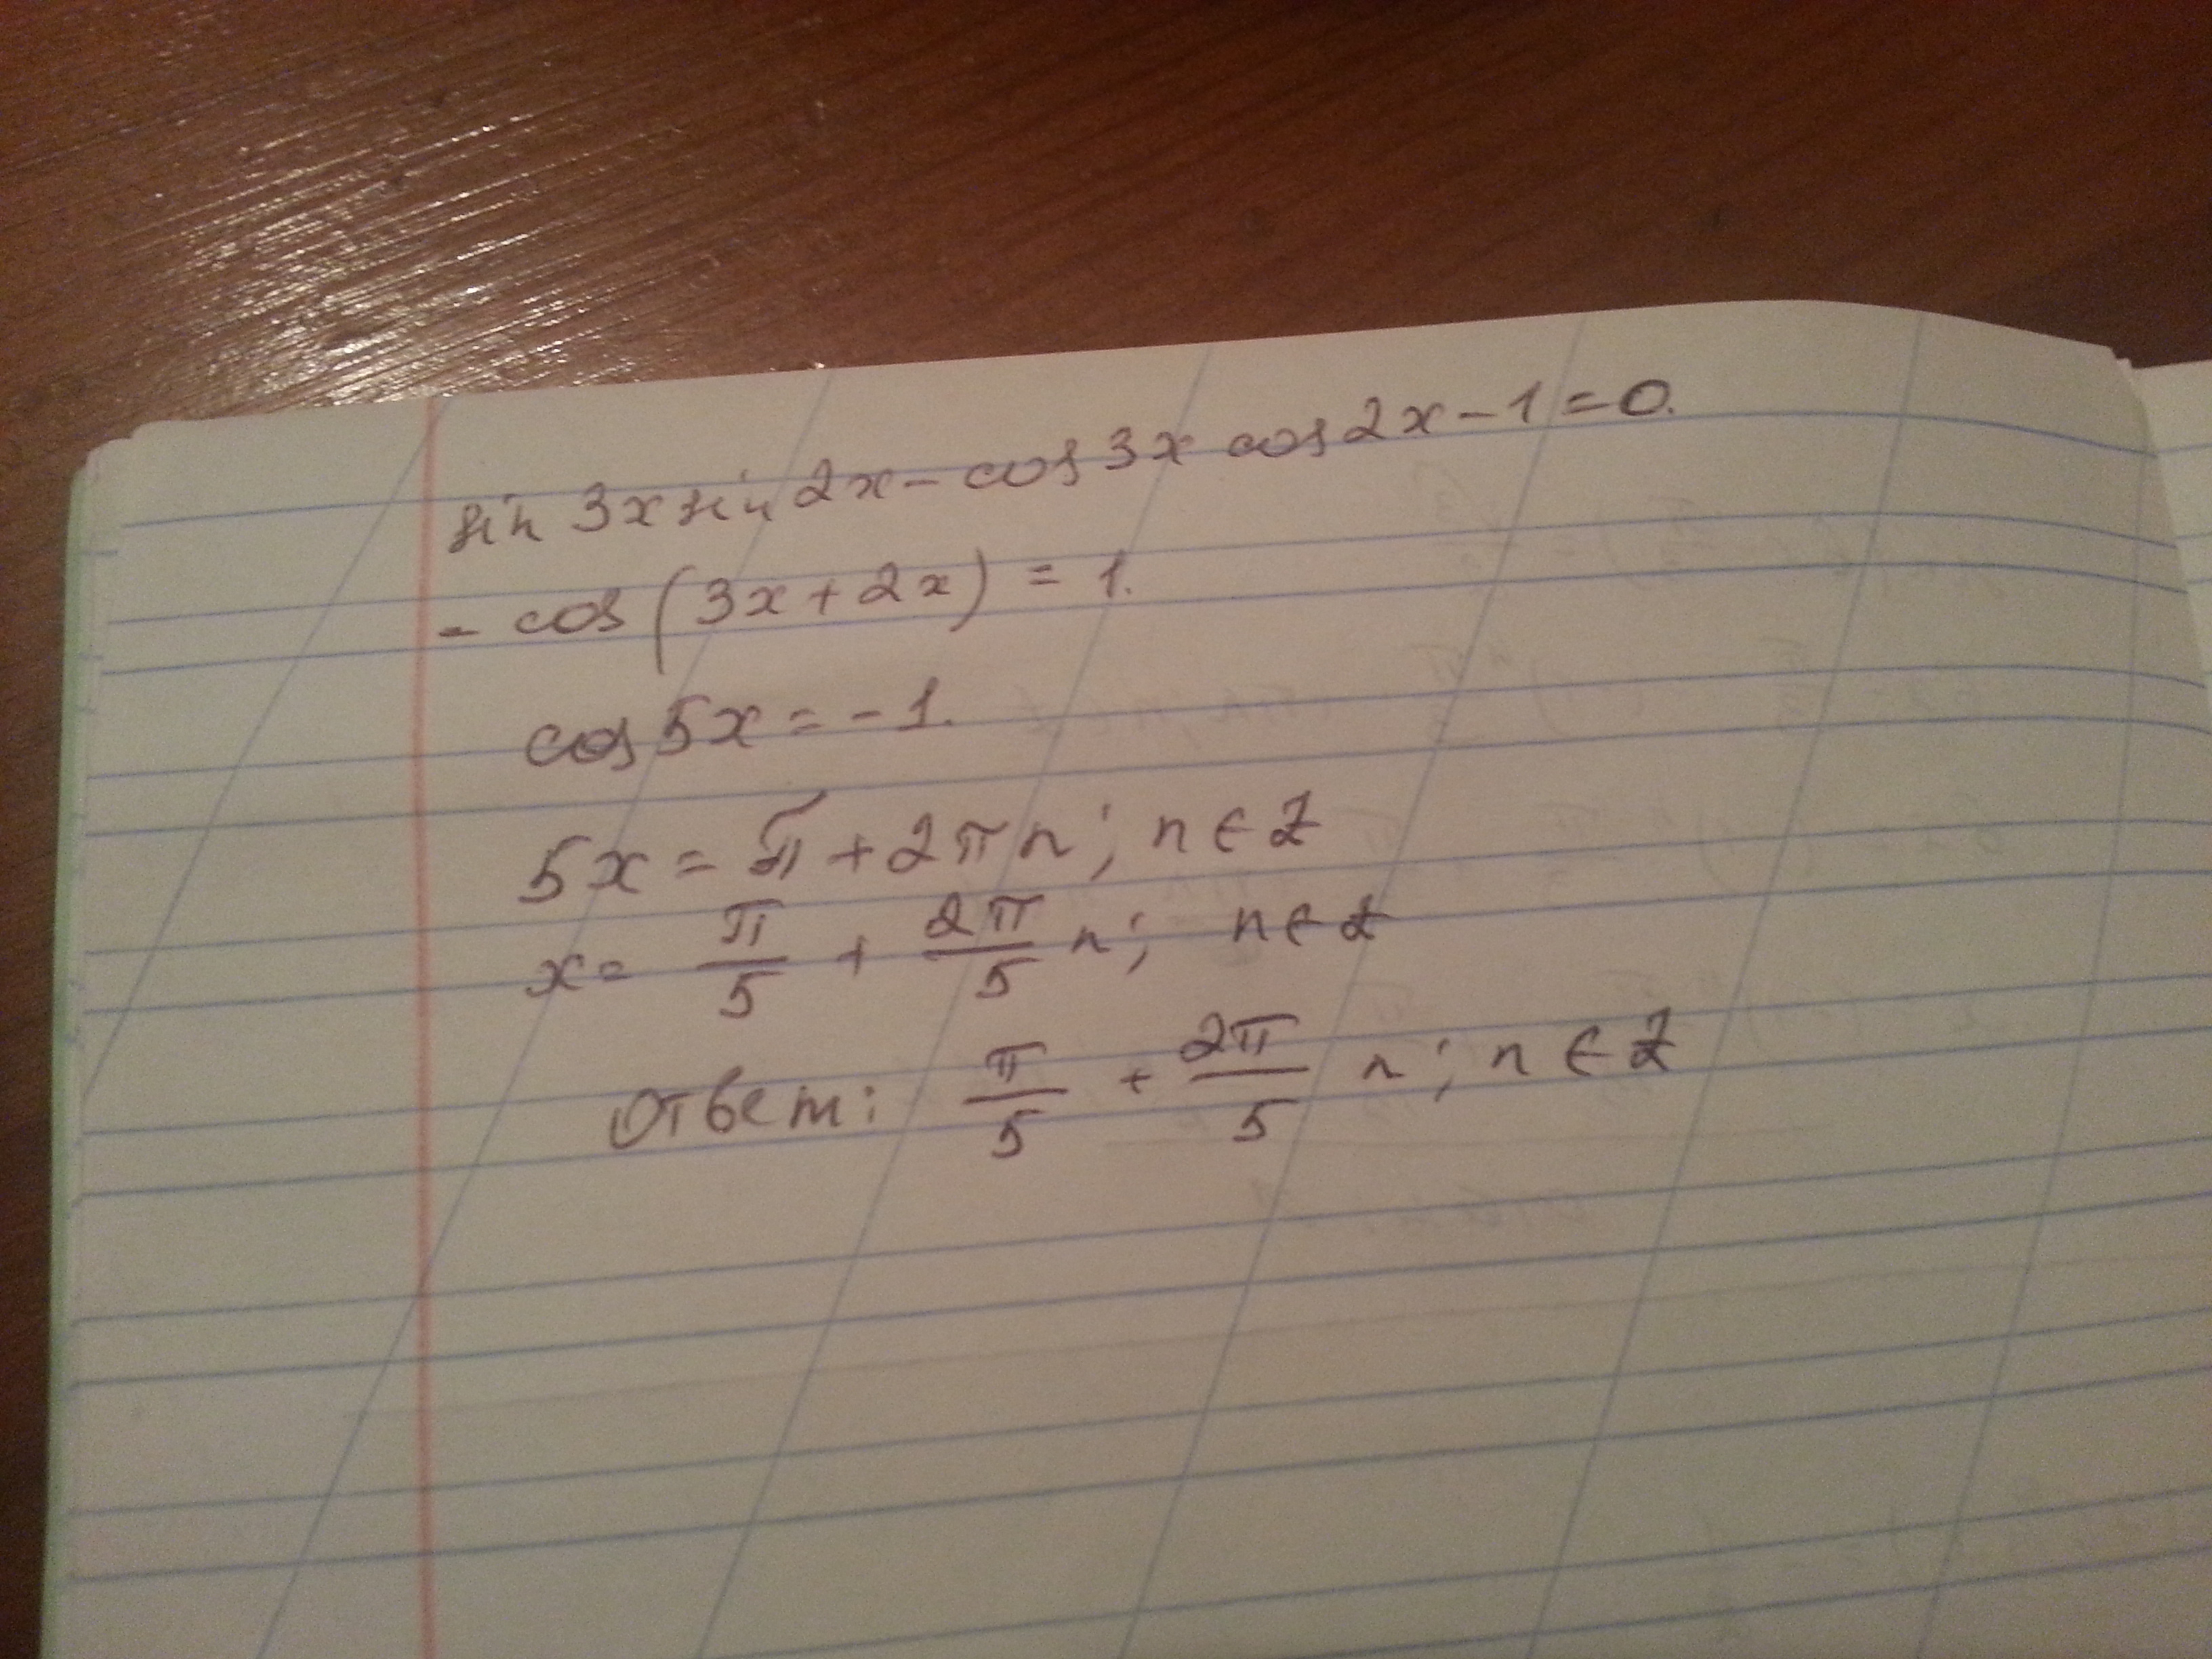 sin 3x sin 2x - cos 3x cos 2x - 1 = 0.
- cos (3x + 2x) = 1.
cos 5x = - 1.
5x = π + 2πn; n ∈ Z
x = π/5 + 2π/5 n; n ∈ Z
Ответ: π/5 + 2π/5 n; n ∈ Z